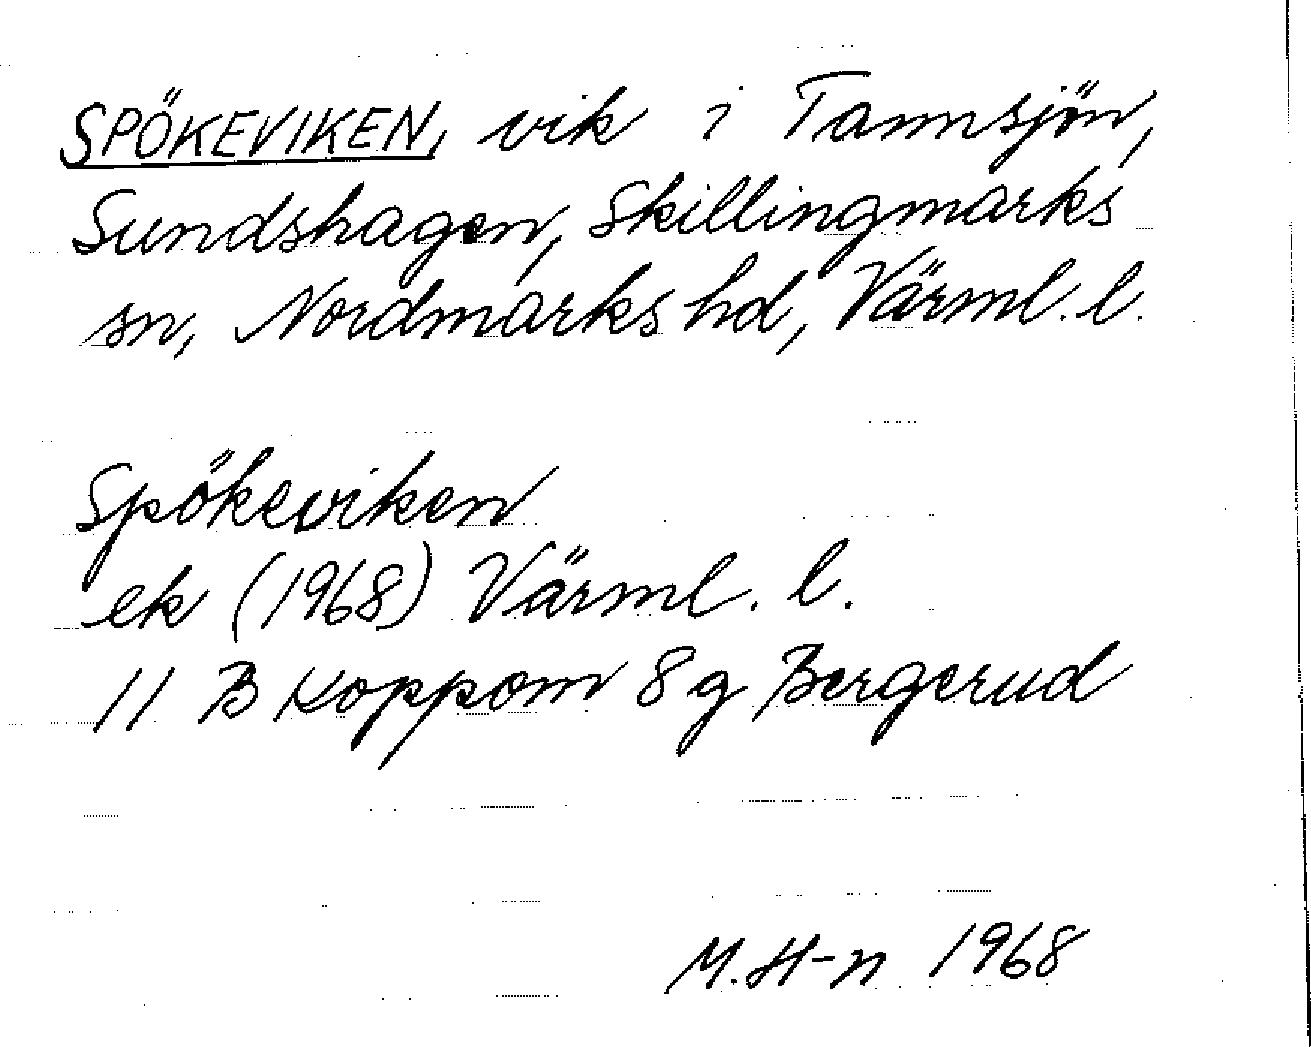 SPÖKEVIKEN, vik i Tannsjön,
Sundshagen, Skillingmarks
sn, Nordmarks hd, Värml. l.
Spökeviken
ek (1968) Värml. l.
11 B Koppom 8 g Bergerud
M. H-n 1968